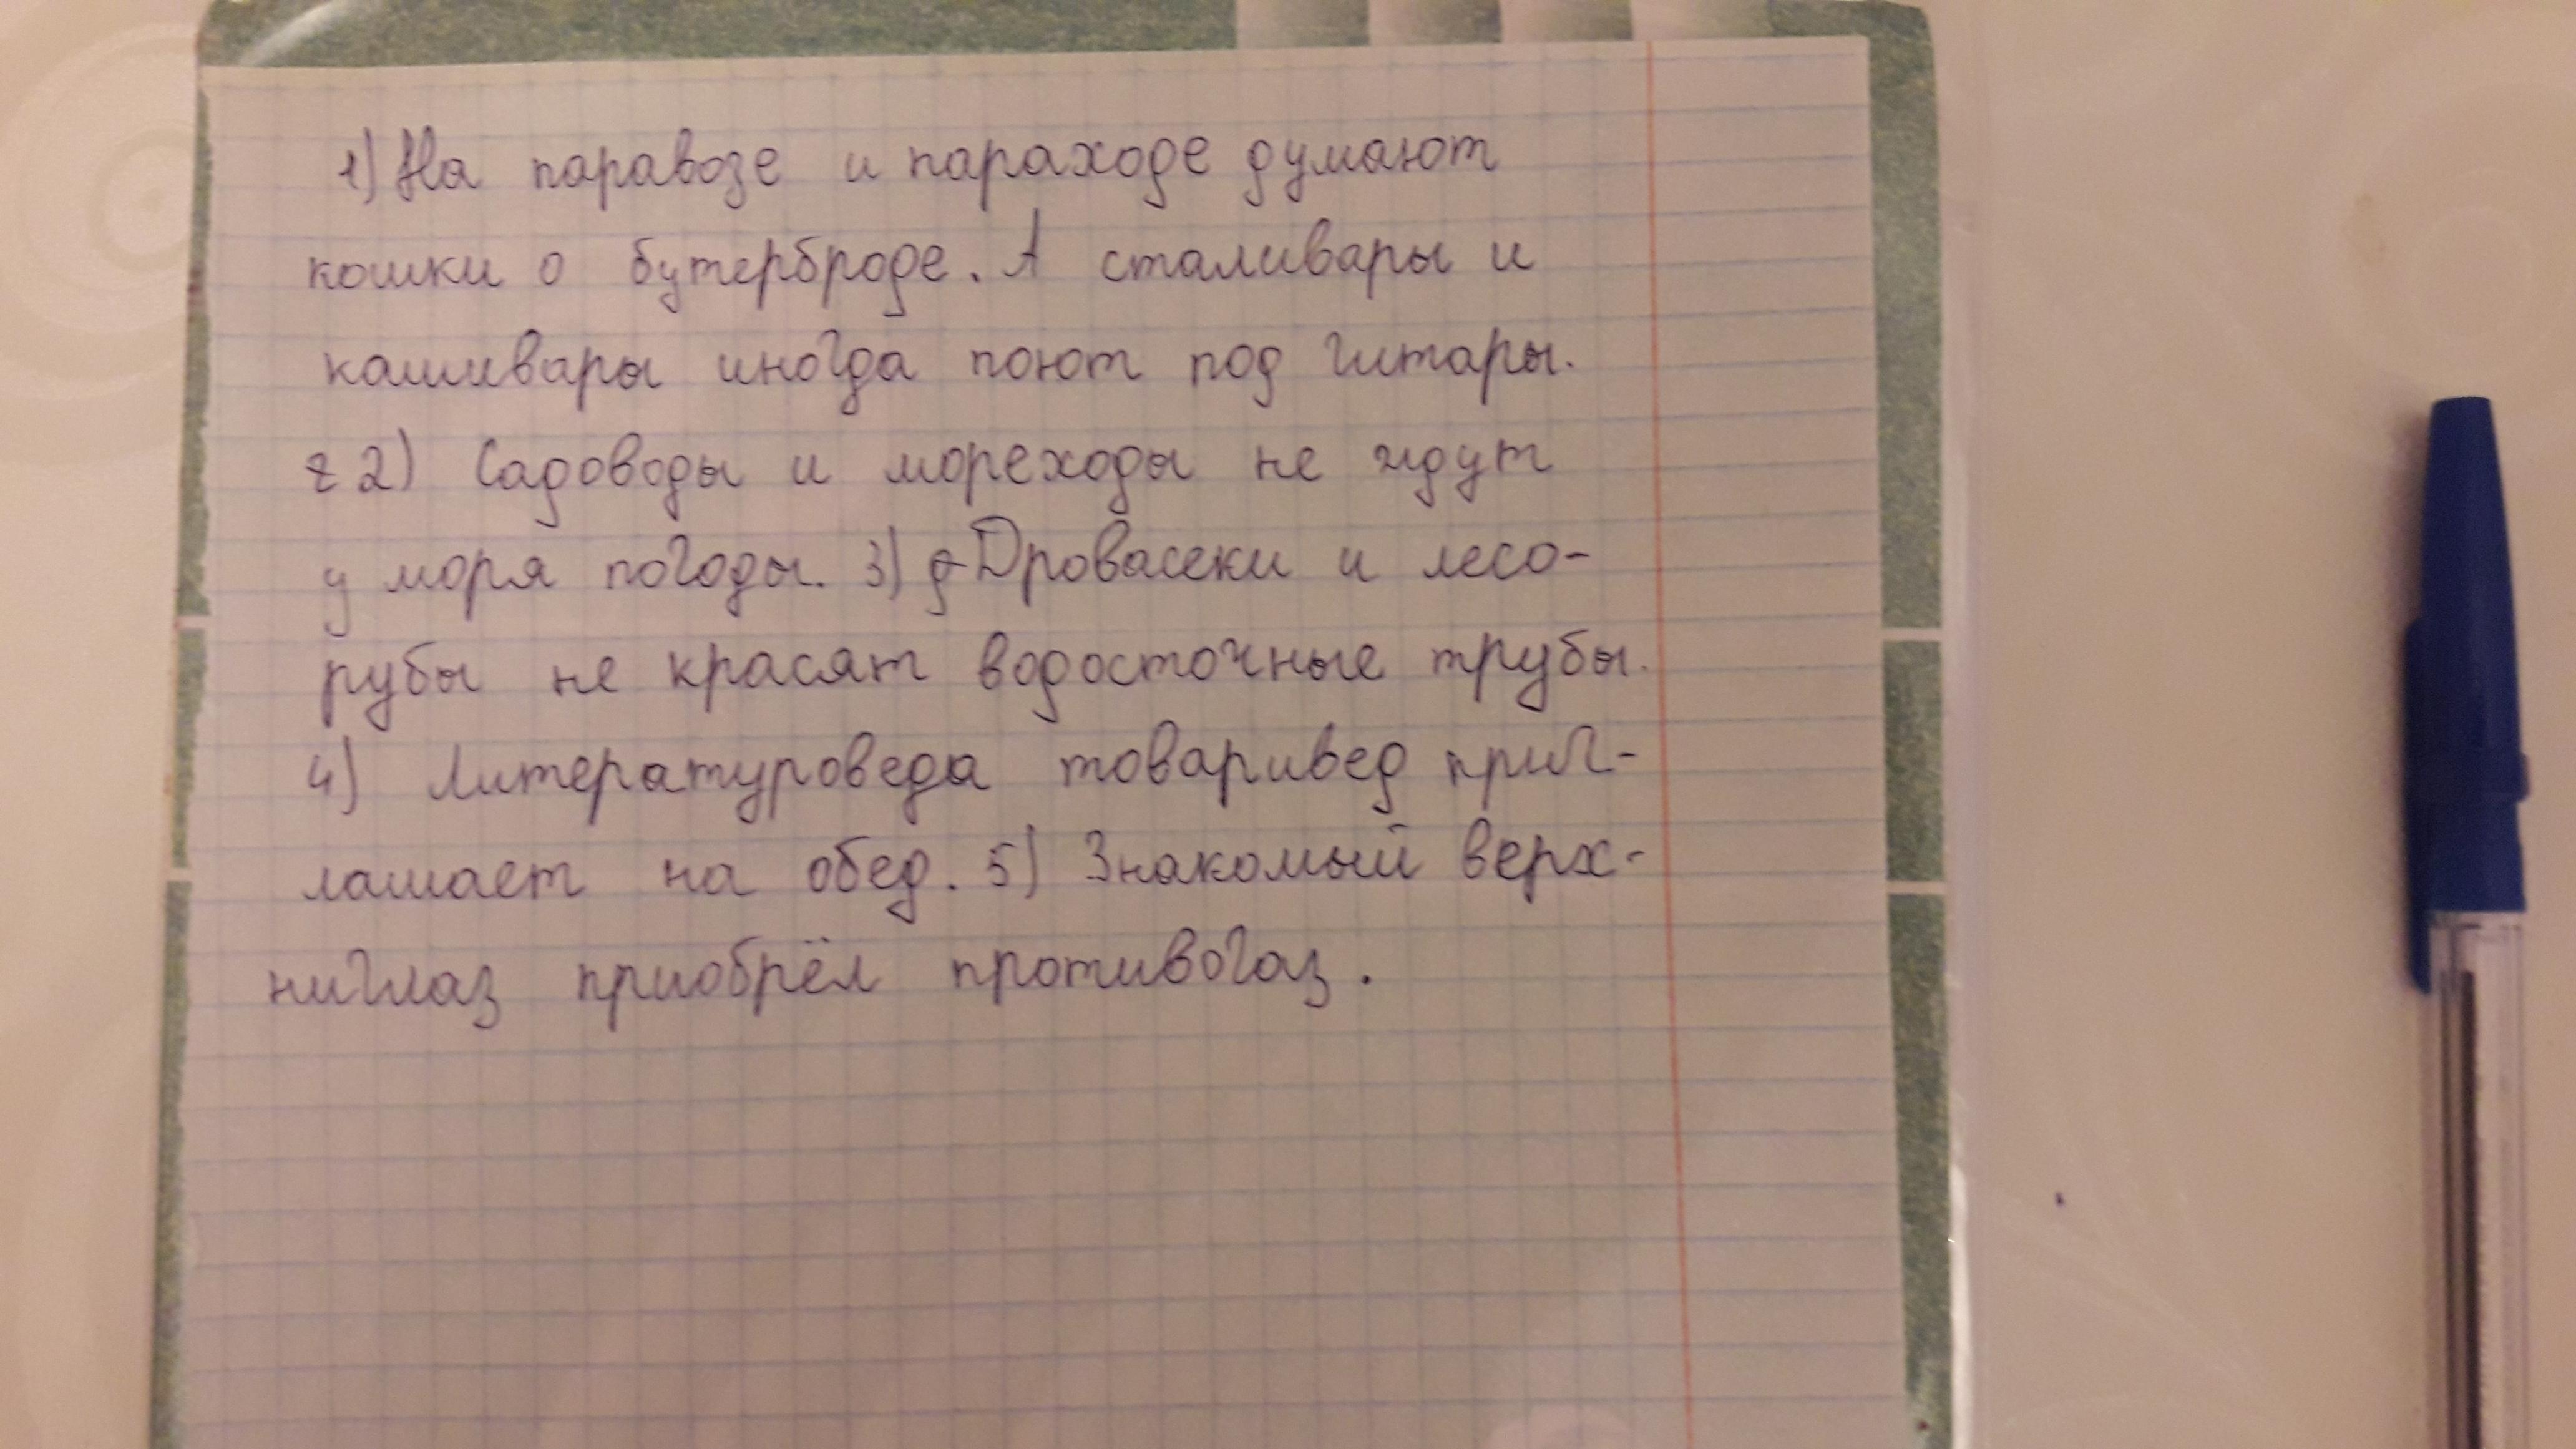 1) На паравозе и параходе думают
кошки о бутерброде. А сталивары и
кашивары иногда поют под гитары.
2) Садоводы и мореходы не ждут
у моря погоды. 3) Дровасеки и лесо-
рубы не красят водосточные трубы.
4) Литературоведа товаривед приг-
лашает на обед. 5) Знакомый верх-
ниглаз приобрёл противогаз.